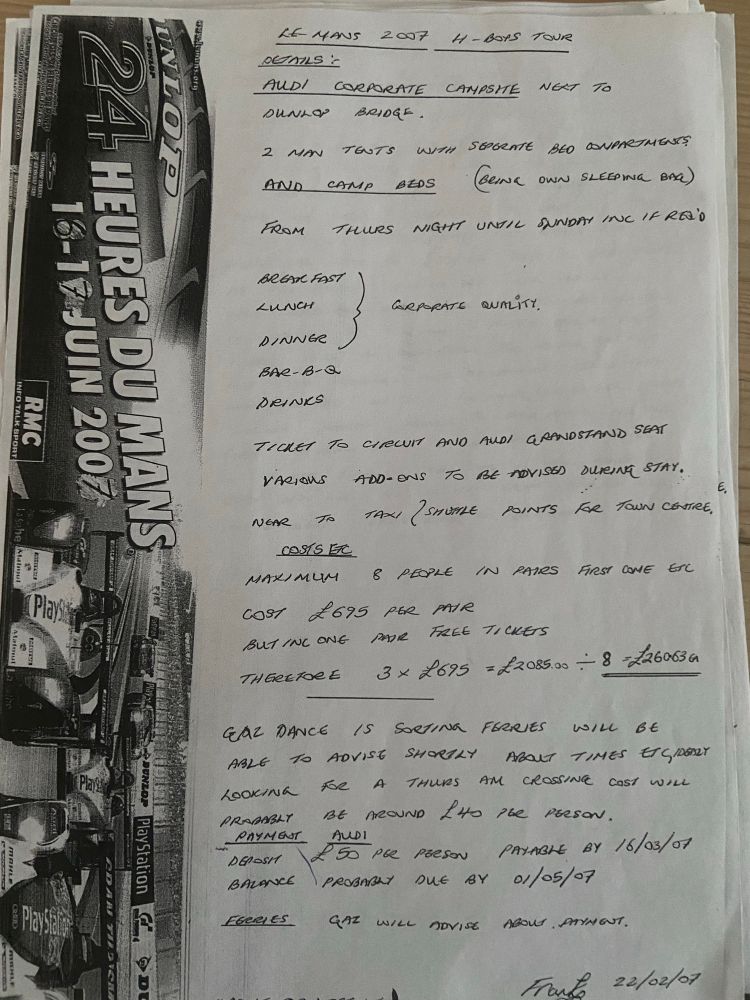 LE MANS 2007 4-BOYS TOUR
DETAILS:-
AUDI CORPORATE CAMPSITE NEXT TO
DUNLOP BRIDGE.
2 MAN TENTS WITH SEPERATE BED COMPARTMENTS
AND CAMP BEDS (BRING OWN SLEEPING BAG)
FROM THURS NIGHT UNTIL SUNDAY INC IF REQ'D
BREAKFAST
LUNCH } CORPORATE QUALITY.
DINNER
BAR-B-Q
DRINKS
TICKET TO CIRCUIT AND AUDI GRANDSTAND SEAT
VARIOUS ADD-ONS TO BE ADVISED DURING STAY.
NEAR TO TAXI / SHUTTLE POINTS FOR TOWN CENTRE.
COSTS ETC
MAXIMUM 8 PEOPLE IN PAIRS FIRST COME ETC
COST £695 PER PAIR
BUT INC ONE PAIR FREE TICKETS
THEREFORE 3 x £695 = £2085.00 ÷ 8 = £260.63 EA
GAZ DANCE IS SORTING FERRIES WILL BE
ABLE TO ADVISE SHORTLY ABOUT TIMES ETC, IDEALY
LOOKING FOR A THURS AM CROSSING COST WILL
PROBABLY BE AROUND £40 PER PERSON.
PAYMENT AUDI
DEPOSIT £50 PER PERSON PAYABLE BY 16/03/07
BALANCE PROBABLY DUE BY 01/05/07
FERRIES GAZ WILL ADVISE ABOUT PAYMENT.
22/02/07
DUNLOP
24
HEURES DU MANS
16-17 JUIN 2007
RMC
INFO TALK SPORT
PlayStation
PlayStation
DUNLOP
PlayStation
PlayStation
GT
MAHLE